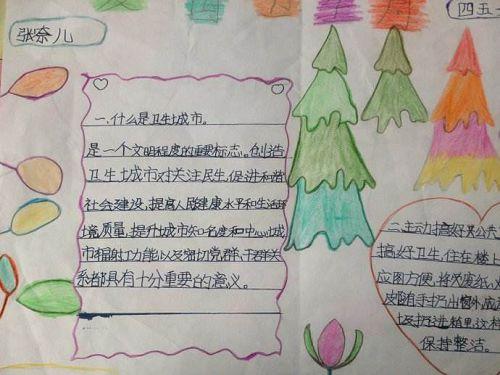 张奈儿
四五
一.什么是卫生城市。
是一个文明程度的重要标志。创造
卫生城市对关注民生,促进和谐
社会建设,提高人民健康水平和生活环
境质量,提升城市知名度和中心城
市辐射功能以及密切党群、干群关
系都具有十分重要的意义。
二.主动搞好公
搞好卫生,住在楼上
应图方便,将废纸、
皮随手扔出窗外,应
圾扔进箱里,这样
保持整洁。